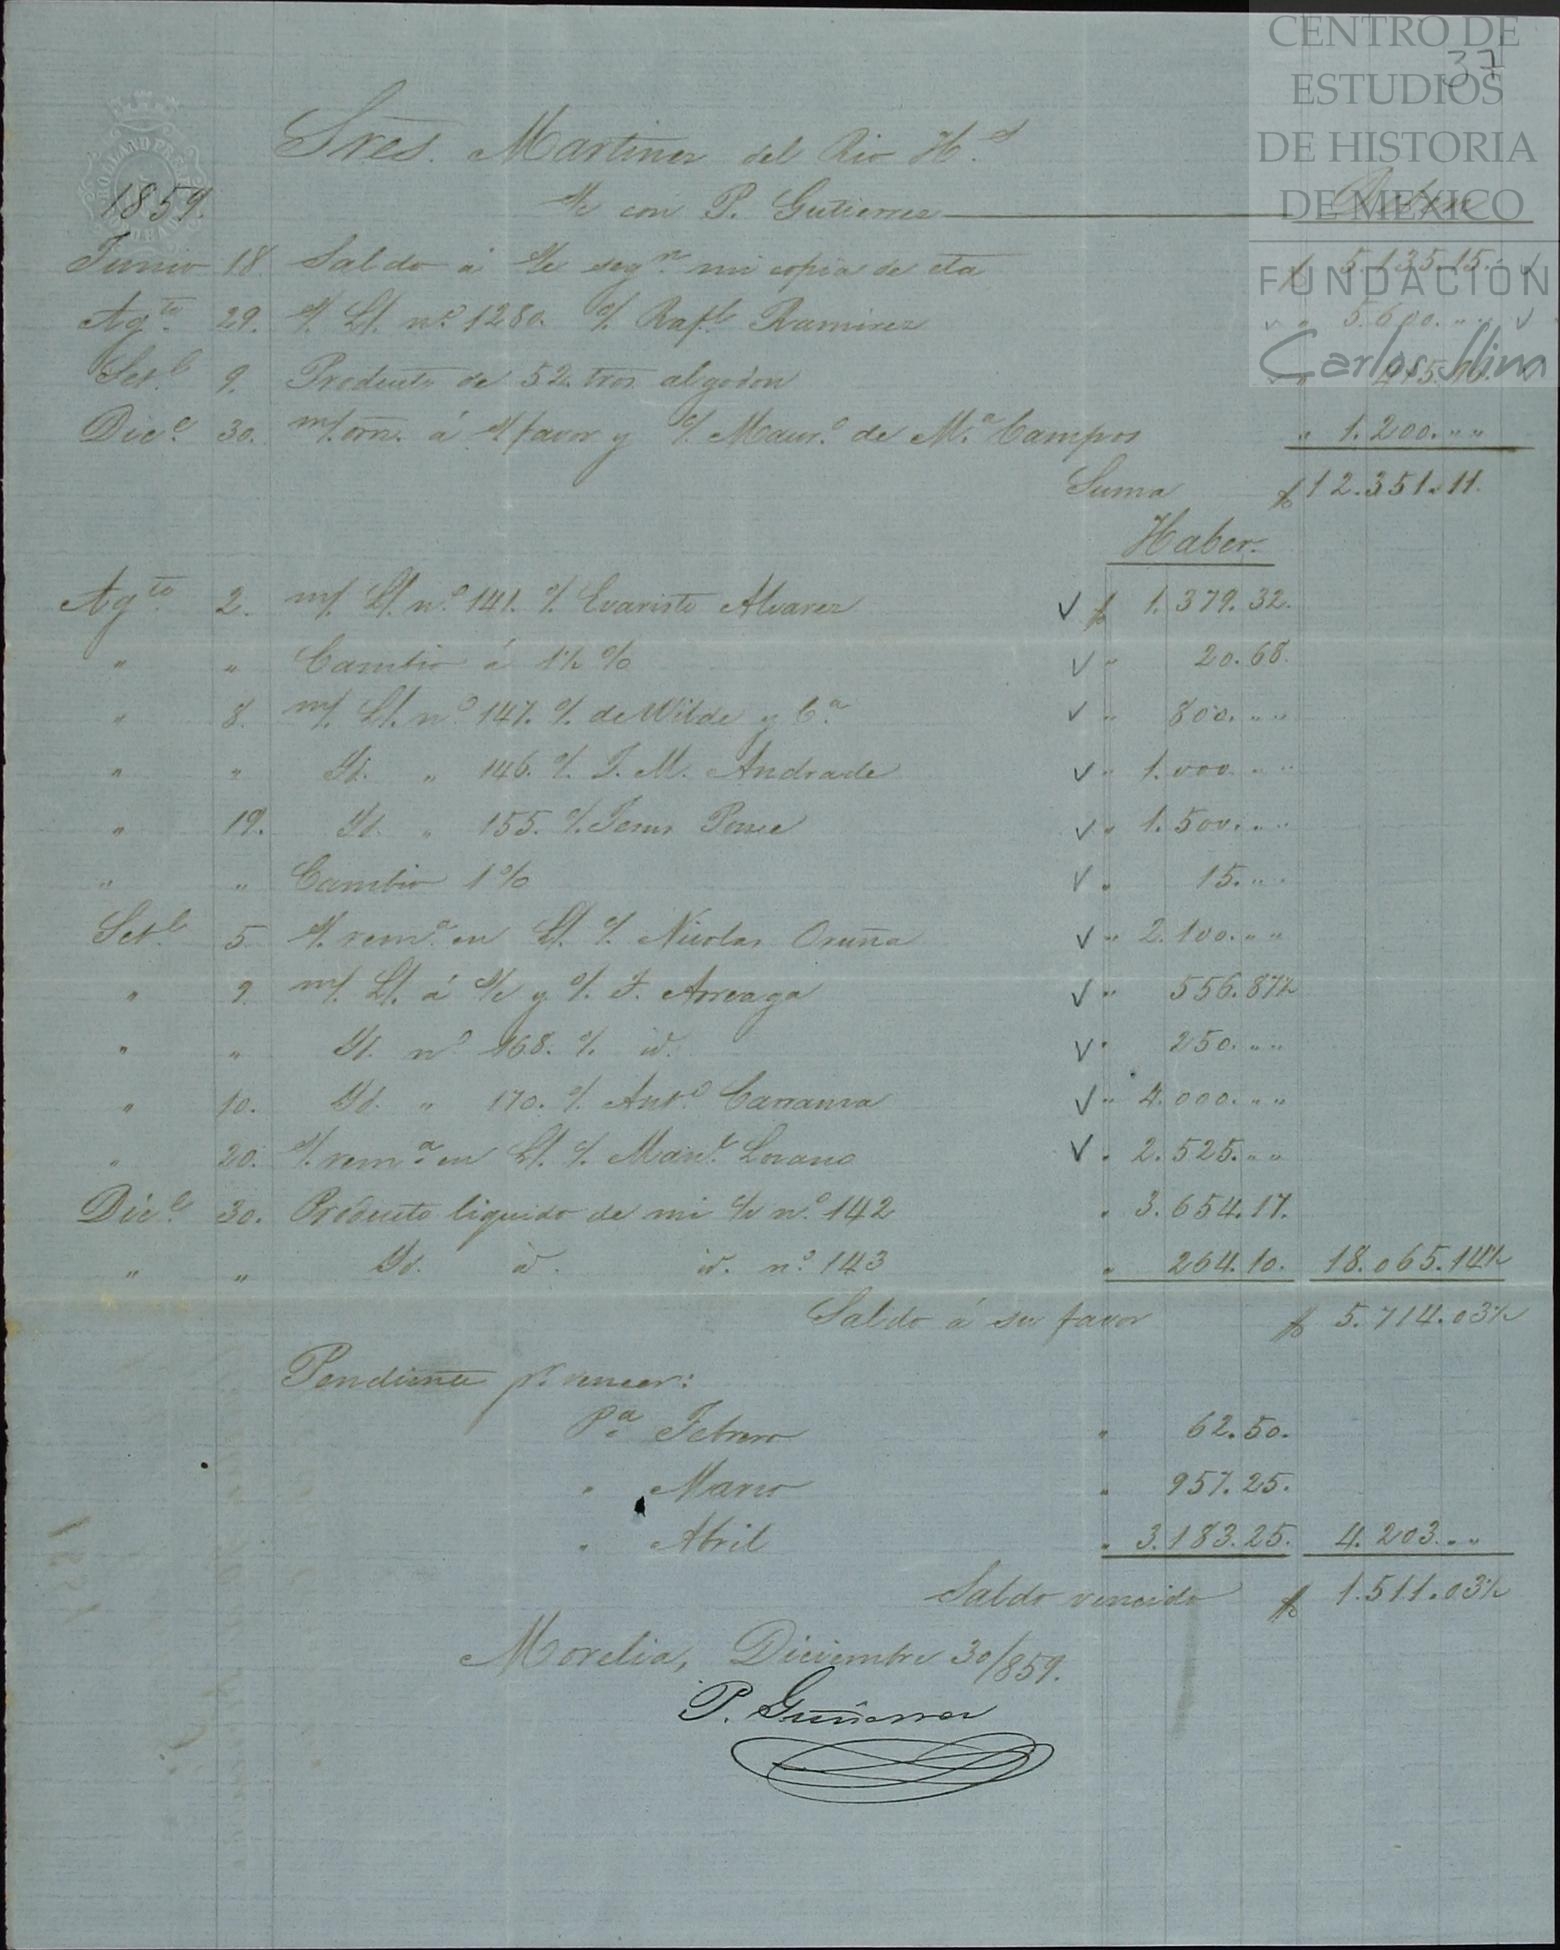 CENTRO DE
ESTUDIOS
DE HISTORIA
DE MEXICO
FUNDACIÓN
Carlos Slim
37
Sres. Martinez del Rio H.s
1859. s/c con P. Gutierrez Deben
Junio 18 Saldo á s/c seg.n mi copia de cta $ 5.135.15.
Ag.to 29. s/ L/. n.o 1280. c/. Raf.l Ramirez " 5.600. " "
Set.e 9. Producto de 52. tros. algodon " 415.96.
Dic.e 30. m/. orn. á s/ favor y c/. Maur.o de M.a Campos " 1.200. " "
Suma $ 12.351.11.
Haber.
Ag.to 2. m/. L/. n.o 141. c/. Evaristo Alvarez $ 1.379.32.
" " Cambio á 1½ % " 20.68.
" 8. m/. L/. n.o 147. c/. de Wilde y C.a " 800. " "
" " Yd. " 146. c/. J. M. Andrade " 1.000. " "
" 19. Yd. " 155. c/. Jesus Ponce " 1.500. " "
" " Cambio 1 % " 15. " "
Set.e 5. s/. rem.a en L/. c/. Nicolas Oruña " 2.100. " "
" 9. m/. L/. á s/c y c/. F. Arreaga " 556.87½
" " Yd. n.o 168. c/. id. " 250. " "
" 10. Yd. " 170. c/. Ant.o Carranza " 4.000. " "
" 20. s/. rem.a en L/. c/. Man.l Lozano " 2.525. " "
Dic.e 30. Producto liquido de mi s/c n.o 142 " 3.654.17.
" " Yd. id. id. n.o 143 " 264.10. 18.065.14½
Saldo á su favor $ 5.714.03½
Pendiente p.r vencer:
P.a Febrero " 62.50.
" Marzo " 957.25.
" Abril " 3.183.25. 4.203. " "
Saldo vencido $ 1.511.03½
Morelia, Diciembre 30/859.
P. Gutierrez